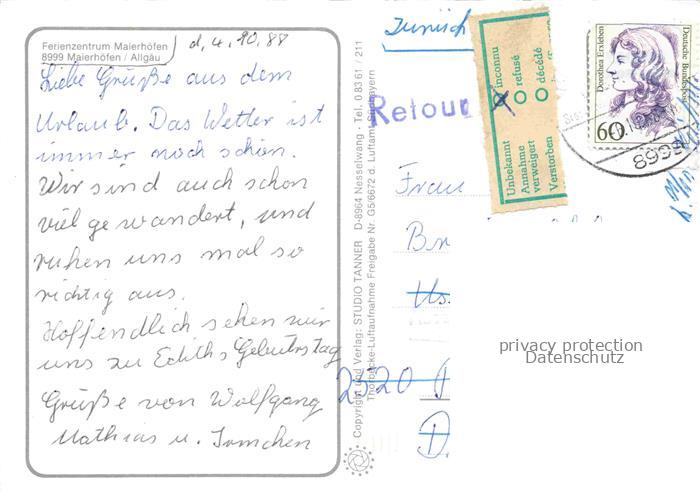 Ferienzentrum Maierhöfen
8999 Maierhöfen / Allgäu
d, 4, 10, 88
Liebe Grüße aus dem
Urlaub. Das Wetter ist
immer noch schön.
Wir sind auch schon
viel gewandert, und
ruhen uns mal so
richtig aus.
Hoffendlich sehen wir
uns zu Ediths Geburtstag
Grüße von Wolfgang
Mathias u. Irmchen
Copyright und Verlag: STUDIO TANNER D-8964 Nesselwang · Tel. 0 83 61 / 211
Thorbecke-Luftaufnahme Freigabe Nr. G5/6672 d. Luftamt Südbayern
Zurück
Retour
inconnu
refusé
décédé
Unbekannt
Annahme
verweigert
Verstorben
Dorothea Erxleben
Deutsche Bundespost
60
8998
Frau
Br
Us.
2320
D.
privacy protection
Datenschutz